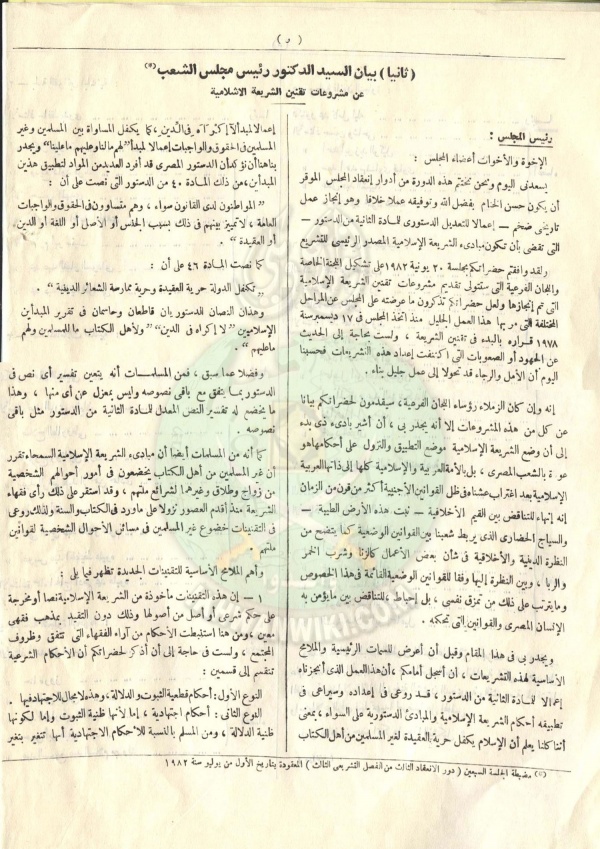 ( ٥ )
( ثانيا ) بيان السيد الدكتور رئيس مجلس الشعب (*)
عن مشروعات تقنين الشريعة الاسلامية
رئيس المجلس :
الإخوة والأخوات أعضاء المجلس :
يسعدنى اليوم ونحن نختتم هذه الدورة من أدوار إنعقاد المجلس الموقر
أن يكون حسن الختام بفضل الله وتوفيقه عملا خلاقا وهو إنجاز عمل
تاريخى ضخم – إعمالا للتعديل الدستورى للمادة الثانية من الدستور –
التى تقضى بأن تكون مبادىء الشريعة الإسلامية المصدر الرئيسى للتشريع
ولقد وافقتم حضراتكم بجلسة ٢٠ يونية ١٩٨٢ على تشكيل اللجنة الخاصة
واللجان الفرعية التى ستتولى تقديم مشروعات تقنين الشريعة الإسلامية
التى تم إنجازها ولعل حضراتكم تذكرون ما عرضته على المجلس عن المراحل
المختلفة التى مر بها هذا العمل الجليل منذ اتخذ المجلس فى ١٧ ديسمبر سنة
١٩٧٨ قراره بالبدء فى تقنين الشريعة ، ولست بحاجة إلى الحديث
عن الجهود أو الصعوبات التى اكتنفت إعداد هذه التشريعات فحسبنا
اليوم أن الأمل والرجاء قد تحولا إلى عمل جليل بناء .
إنه وإن كان الزملاء رؤساء اللجان الفرعية ، سيقدمون لحضراتكم بيانا
عن كل من هذه المشروعات إلا أنه يجدر بى ، أن أشير بادىء ذى بدء
إلى أن وضع الشريعة الإسلامية موضع التطبيق والنزول على أحكامها هو
عودة بالشعب المصرى ، بل بالأمة العربية والإسلامية كلها إلى ذاتها العربية
الإسلامية بعد اغتراب عشناه فى ظل القوانين الأجنبية أكثر من قرن من الزمان
إنه إنهاء للتناقض بين القيم الأخلاقية – نبت هذه الأرض الطيبة –
والسياج الحضارى الذى يربط شعبنا بين القوانين الوضعية كما يتضح من
النظرة الدينية والأخلاقية فى شأن بعض الأعمال كالزنا وشرب الخمر
والربا ، وبين النظرة إليها وفقا للقوانين الوضعية القائمة فى هذا الخصوص
وما يترتب على ذلك من تمزق نفسى ، بل إحباط ، للتناقض بين ما يؤمن به
الإنسان المصرى والقوانين التى تحكمه .
ويجدر بى فى هذا المقام وقبل أن أعرض للسمات الرئيسية والملامح
الأساسية لهذه التشريعات ، أن أسجل أمامكم ، أن هذا العمل الذى أنجزناه
إعمالا للمادة الثانية من الدستور ، قد روعى فى إعداده وسيراعى فى
تطبيقه أحكام الشريعة الإسلامية والمبادئ الدستورية على السواء ، بمعنى
أننا كلنا يعلم أن الإسلام يكفل حرية العقيدة لغير المسلمين من أهل الكتاب
إعمالا لمبدأ لا إكراه فى الدين ، كما يكفل المساواة بين المسلمين وغير
المسلمين فى الحقوق والواجبات إعمالا لمبدأ "لهم مالنا وعليهم ما علينا" ويجدر
بنا هنا أن نؤكد أن الدستور المصرى قد أفرد العديد من المواد لتطبيق هذين
المبدأين ، من ذلك المادة ٤٠ من الدستور التى نصت على أن :
" المواطنون لدى القانون سواء ، وهم متساوون فى الحقوق والواجبات
العامة ، لا تمييز بينهم فى ذلك بسبب الجنس أو الأصل أو اللغة أو الدين
أو العقيدة " .
كما نصت المادة ٤٦ على أن :
" تكفل الدولة حرية العقيدة وحرية ممارسة الشعائر الدينية "
وهذان النصان الدستوريان قاطعان وحاسمان فى تقرير المبدأين
الإسلاميين "لا إكراه فى الدين" "ولأهل الكتاب ما للمسلمين ولهم
ما عليهم"
وفضلا عما سبق ، فمن المسلمات أنه يتعين تفسير أى نص فى
الدستور بما يتفق مع باقى نصوصه وليس بمعزل عن أى منها ، وهذا
ما يخضع له تفسير النص المعدل للمادة الثانية من الدستور مثل باقى
نصوصه .
كما أنه من المسلمات أيضا أن مبادىء الشريعة الإسلامية السمحاء تقرر
أن غير المسلمين من أهل الكتاب يخضعون فى أمور أحوالهم الشخصية
من زواج وطلاق وغيرهما لشرائع ملتهم ، وقد استقر على ذلك رأى فقهاء
الشريعة منذ أقدم العصور نزولا على ماورد فى الكتاب والسنة ولذلك روعى
فى التقنينات خضوع غير المسلمين فى مسائل الأحوال الشخصية لقوانين
ملتهم .
وأهم الملامح الأساسية للتقنينات الجديدة تظهر فيما يلى :
١ – إن هذه التقنينات مأخوذة من الشريعة الإسلامية نصا أو مخرجة
على حكم شرعى أو أصل من أصولها وذلك دون التقيد بمذهب فقهى
معين ، ومن هنا استنبطت الأحكام من آراء الفقهاء التى تتفق وظروف
المجتمع ، ولست فى حاجة إلى أن أذكر لحضراتكم أن الأحكام الشرعية
تنقسم إلى قسمين :
النوع الأول : أحكام قطعية الثبوت والدلالة ، وهذه لا مجال للاجتهاد فيها .
النوع الثانى : أحكام اجتهادية ، إما لأنها ظنية الثبوت وإما لكونها
ظنية الدلالة ، ومن المسلم بالنسبة للأحكام الاجتهادية أنها تتغير بتغير
(*) مضبطة الجلسة السبعين ( دور الانعقاد الثالث من الفصل التشريعى الثالث ) المعقودة بتاريخ الأول من يوليو سنة ١٩٨٢